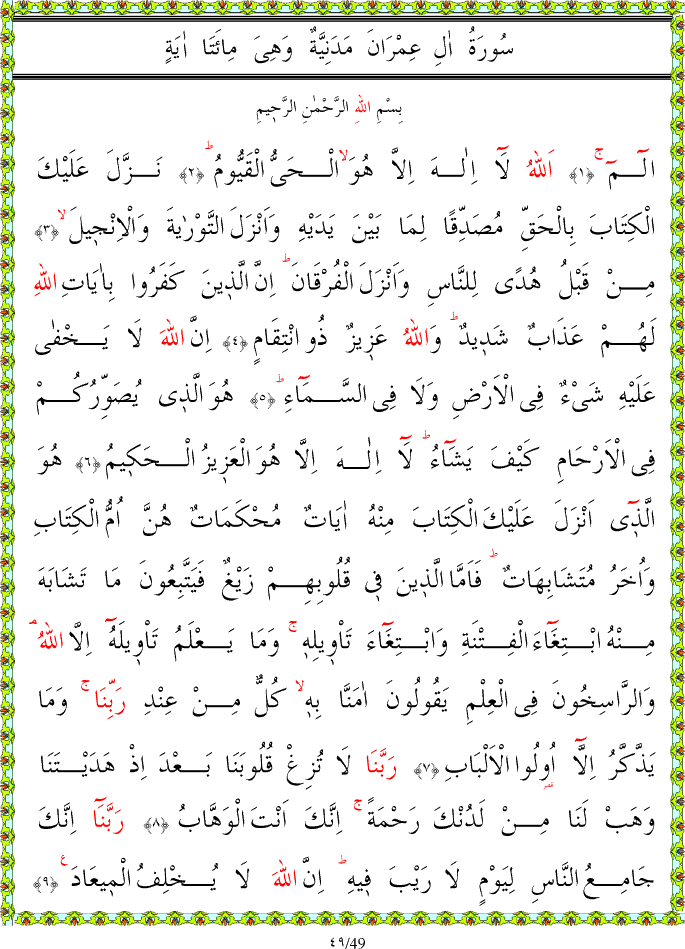 سُورَةُ اٰلِ عِمْرَانَ مَدَنِيَّةٌ وَهِىَ مِائَتَا اٰيَةٍ
بِسْمِ اللهِ الرَّحْمٰنِ الرَّحٖيمِ
الٓـمٓ ۚ ﴿١﴾ اَللهُ لَٓا اِلٰـهَ اِلَّا هُوَ ۙ الْـحَىُّ الْقَيُّومُ ۜ ﴿٢﴾ نَـزَّلَ عَلَيْكَ
الْكِتَابَ بِالْحَقِّ مُصَدِّقًا لِمَا بَيْنَ يَدَيْهِ وَاَنْزَلَ التَّوْرٰيةَ وَالْاِنْجٖيلَ ۙ ﴿٣﴾
مِـنْ قَبْلُ هُدًى لِلنَّاسِ وَاَنْزَلَ الْفُرْقَانَ ؕ اِنَّ الَّذٖينَ كَفَرُوا بِاٰيَاتِ اللهِ
لَهُـمْ عَذَابٌ شَدٖيدٌ ؕ وَاللهُ عَزٖيزٌ ذُو انْتِقَامٍ ﴿٤﴾ اِنَّ اللهَ لَا يَـخْفٰى
عَلَيْهِ شَىْءٌ فِى الْاَرْضِ وَلَا فِى السَّـمَٓاءِ ؕ ﴿٥﴾ هُوَ الَّذٖى يُصَوِّرُكُـمْ
فِى الْاَرْحَامِ كَيْفَ يَشَٓاءُ ؕ لَٓا اِلٰـهَ اِلَّا هُوَ الْعَزٖيزُ الْـحَكٖيمُ ﴿٦﴾ هُوَ
الَّذٖٓى اَنْزَلَ عَلَيْكَ الْكِتَابَ مِنْهُ اٰيَاتٌ مُحْكَمَاتٌ هُنَّ اُمُّ الْكِتَابِ
وَاُخَرُ مُتَشَابِهَاتٌ ؕ فَاَمَّا الَّذٖينَ فٖى قُلُوبِهِـمْ زَيْغٌ فَيَتَّبِعُونَ مَا تَشَابَهَ
مِـنْهُ ابْـتِغَٓاءَ الْفِـتْنَةِ وَابْـتِغَٓاءَ تَاْوٖيلِهٖ ۚ وَمَا يَـعْلَمُ تَاْوٖيلَهُٓ اِلَّا اللهُ ۘ
وَالرَّاسِخُونَ فِى الْعِلْمِ يَقُولُونَ اٰمَنَّا بِهٖ ۙ كُلٌّ مِـنْ عِنْدِ رَبِّنَا ۚ وَمَا
يَذَّكَّرُ اِلَّٓا اُولُوا الْاَلْبَابِ ﴿٧﴾ رَبَّنَا لَا تُزِغْ قُلُوبَنَا بَـعْدَ اِذْ هَدَيْـتَنَا
وَهَبْ لَنَا مِـنْ لَدُنْكَ رَحْمَةً ۚ اِنَّكَ اَنْتَ الْوَهَّابُ ﴿٨﴾ رَبَّنَٓا اِنَّكَ
جَامِـعُ النَّاسِ لِيَوْمٍ لَا رَيْبَ فٖيهِ ؕ اِنَّ اللهَ لَا يُـخْلِفُ الْمٖيعَادَ ࣖ ﴿٩﴾
٤٩/49